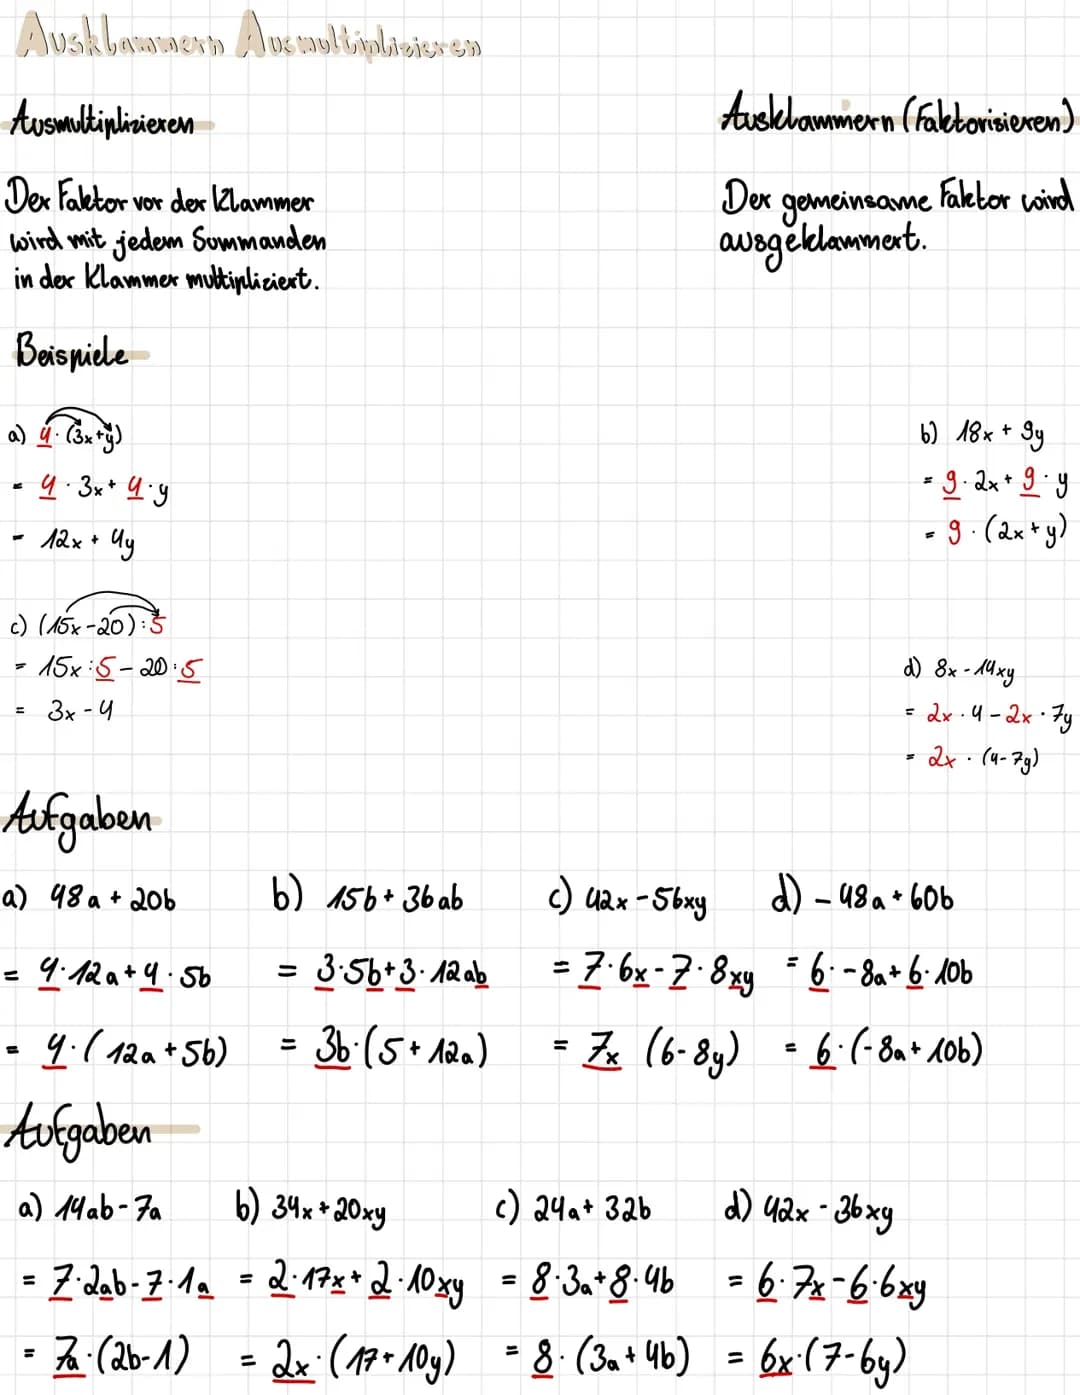 Ausklammern Ausmultiplizieren
Ausmultiplizieren
Der Faktor vor der Klammer
wird mit jedem Summanden
in der Klammer multipliziert.
Ausklammern (Faktorisieren)
Der gemeinsame Faktor wird
ausgeklammert.
Beispiele
a) 4 · (3x+y)
= 4 · 3x + 4 · y
= 12x + 4y
b) 18x + 9y
= 9 · 2x + 9 · y
= 9 · (2x + y)
c) (15x - 20) : 5
= 15x : 5 - 20 : 5
= 3x - 4
d) 8x - 14xy
= 2x · 4 - 2x · 7y
= 2x · (4-7y)
Aufgaben
a) 48a + 20b
= 4·12a + 4 · 5b
= 4·(12a + 5b)
b) 15b + 36ab
= 3·5b + 3·12ab
= 3b·(5 + 12a)
c) 42x - 56xy
= 7·6x - 7·8xy
= 7x (6-8y)
d) -48a + 60b
= 6·-8a + 6·10b
= 6·(-8a + 10b)
Aufgaben
a) 14ab - 7a
= 7·2ab - 7·1a
= 7a·(2b-1)
b) 34x + 20xy
= 2·17x + 2·10xy
= 2x·(17 + 10y)
c) 24a + 32b
= 8·3a + 8·4b
= 8·(3a + 4b)
d) 42x - 36xy
= 6·7x - 6·6xy
= 6x·(7-6y)